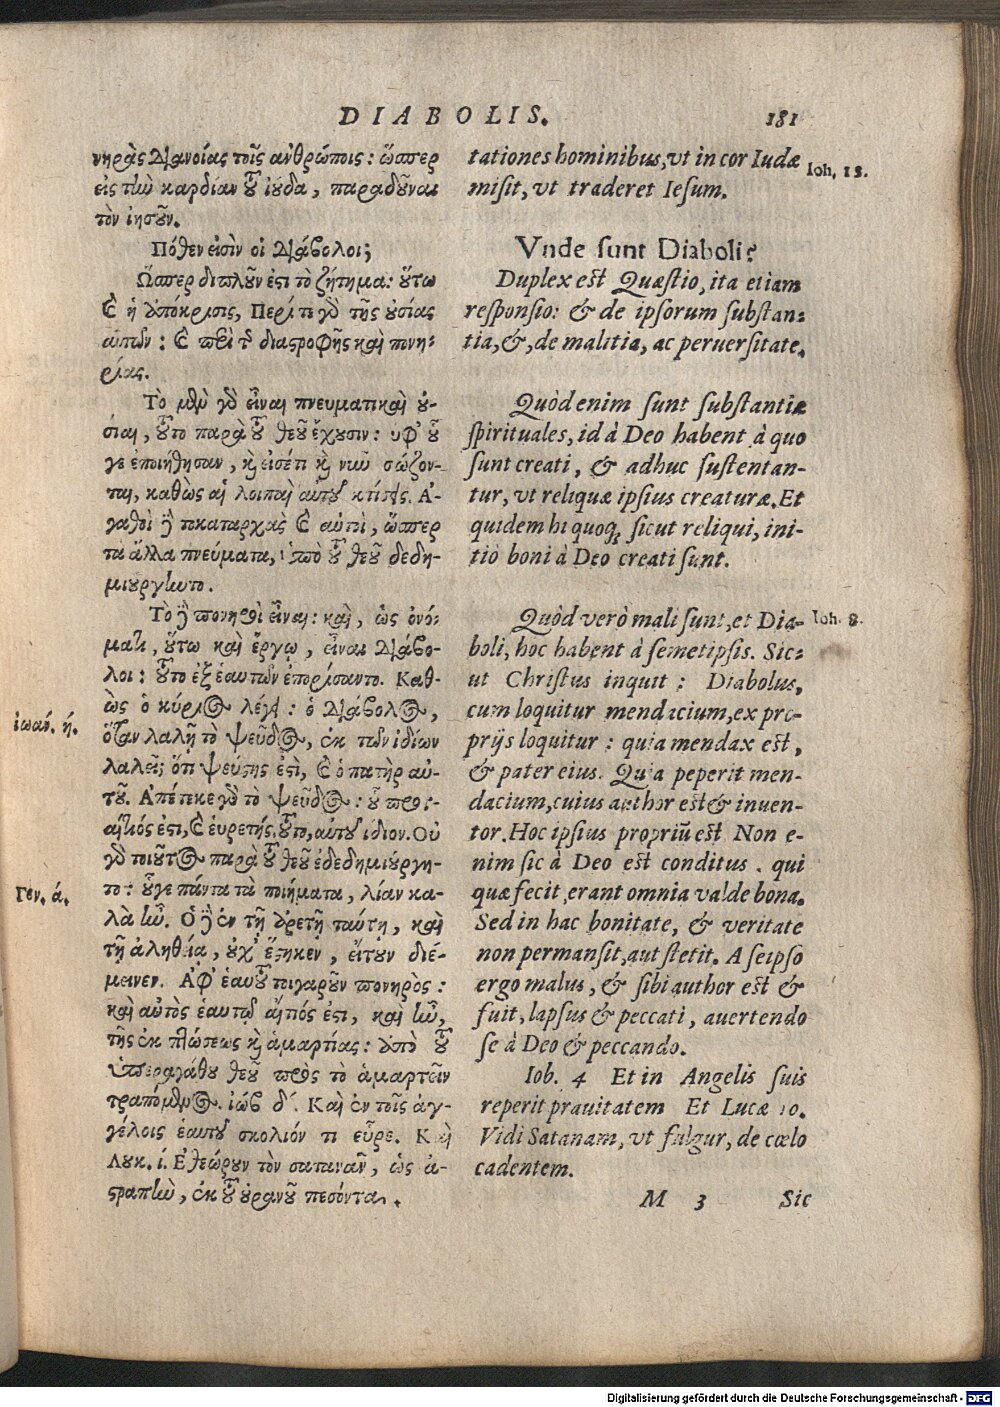 DIABOLIS.
181
νηρὰς διανοίας τοῖς ἀνθρώποις: ὥσπερ
εἰς τὴν καρδίαν τοῦ ἰούδα, παραδοῦναι
τὸν ἰησοῦν.
Πόθεν εἰσὶν οἱ Διάβολοι;
Ὥσπερ διπλοῦν ἐστι τὸ ζήτημα: οὕτω
καὶ ἡ ἀπόκρισις, Περί τε γὸ τῆς οὐσίας
αὐτῶν: καὶ περὶ τ διαστροφῆς καὶ πονη-
ρίας.
Τὸ μὲν γὸ εἶναι πνευματικαὶ οὐ-
σίαι, τοῦτο παρὰ τοῦ θεοῦ ἔχουσιν: ὑφ' οὗ
γε ἐποιήθησαν, καὶ εἰσέτι καὶ νῦν σώζον-
ται, καθὼς αἱ λοιπαὶ αὐτοῦ κτίσεις. Ἀ-
γαθοὶ δὲ τὸ καταρχὰς καὶ αὐτοὶ, ὥσπερ
τὰ ἄλλα πνεύματα, ὑπὸ τοῦ θεοῦ δεδη-
μιούργηντο.
Τὸ δὲ πονηροὶ εἶναι: καὶ, ὡς ὀνό-
ματι, οὕτω καὶ ἔργῳ, εἶναι Διάβο-
λοι: τοῦτο ἐξ ἑαυτῶν ἐπορίσαντο. Καθ-
ὼς ὁ κύριος λέγει: ὁ Διάβολος,
ὅταν λαλῇ τὸ ψεῦδος, ἐκ τῶν ἰδίων
λαλεῖ; ὅτι ψεύστης ἐστὶ, καὶ ὁ πατὴρ αὐ-
τοῦ. Ἀπέτεκε γὸ τὸ ψεῦδος: οὗ παρ-
αίτιός ἐστι, καὶ εὑρετής. τοῦτο, αὐτοῦ ἴδιον. Οὐ
γὸ τοιοῦτος παρὰ τοῦ θεοῦ ἐδεδημιούργη-
το: οὗγε πάντα τὰ ποιήματα, λίαν κα-
λὰ ἦν. Ὁ δὲ ἐν τῇ ἀρετῇ ταύτῃ, καὶ
τῇ ἀληθείᾳ, οὐχ' ἕστηκεν, εἴτουν διέ-
μεινεν. Ἀφ' ἑαυτοῦ τοιγαροῦν πονηρὸς:
καὶ αὐτὸς ἑαυτῷ αἴτιός ἐστι, καὶ ἦν,
τῆς ἐκ πτώσεως καὶ ἁμαρτίας: ἀπὸ τοῦ
ὑπεραγάθου θεοῦ πρὸς τὸ ἁμαρτεῖν
τραπόμενος. ἰώβ δ'. Καὶ ἐν τοῖς ἀγ-
γέλοις ἑαυτοῦ σκολιόν τι εὗρε. Καὶ
Λουκ. ί. Ἐθεώρουν τὸν σατανᾶν, ὡς ἀ-
στραπὴν, ἐκ τοῦ οὐρανοῦ πεσόντα.
ἰωαν. ή.
Γεν. ά.
tationes hominibus, vt in cor Iudæ
misit, vt traderet Iesum.
Ioh. 13.
Vnde sunt Diaboli?
Duplex est Quæstio, ita etiam
responsio: & de ipsorum substan-
tia, &, de malitia, ac peruersitate.
Quòd enim sunt substantiæ
spirituales, id à Deo habent à quo
sunt creati, & adhuc sustentan-
tur, vt reliquæ ipsius creaturæ. Et
quidem hi quoq;, sicut reliqui, ini-
tiò boni à Deo creati sunt.
Quòd verò mali sunt, et Dia-
boli, hoc habent à semetipsis. Sic-
ut Christus inquit: Diabolus,
cum loquitur mendacium, ex pro-
prijs loquitur: quia mendax est,
& pater eius. Quia peperit men-
dacium, cuius author est & inuen-
tor. Hoc ipsius propriũ est Non e-
nim sic à Deo est conditus. qui
quæ fecit, erant omnia valde bona.
Sed in hac bonitate, & veritate
non permansit, aut stetit. A seipso
ergo malus, & sibi author est &
fuit, lapsus & peccati, auertendo
se à Deo & peccando.
Ioh. 8.
Iob. 4 Et in Angelis suis
reperit prauitatem Et Lucæ 10.
Vidi Satanam, vt fulgur, de cœlo
cadentem.
M 3
Sic
Digitalisierung gefördert durch die Deutsche Forschungsgemeinschaft - DFG